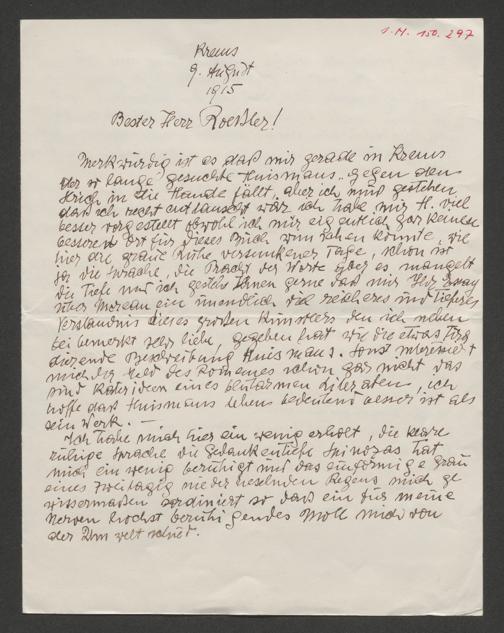 I.N. 150.297
Krems
9. August
1915
Bester Herr Roessler!
Merkwürdig ist es daß mir gerade in Krems
der so lange gesuchte Huismans „Gegen den
Strich in die Hände fällt, aber ich muß gestehen
daß ich recht enttäuscht war ich habe mir H. viel
besser vorgestellt obwohl ich mir eigentlich gar keinen
bessern Ort für dieses Buch denken könnte, wie
hier die graue Ruhe versunkener Tage, schön ist
ja die Sprache, die Pracht der Worte aber es mangelt
die Tiefe und ich gestehe Ihnen gerne daß mir Ihr Essay
über Moreau ein unendlich viel reicheres und tieferes
Verständnis dieses großen Künstlers den ich neben
bei bemerkt sehr liebe, gegeben hat wie die etwas
Beschreibung Huismans. Sonst interessiert
mich der Held des Romanes schon gar nicht das
sind Katerideen eines blutarmen Literaten, ich
hoffe daß Huismans Leben bedeutend besser ist als
sein Werk. —
Ich habe mich hier ein wenig erholt, die klare
ruhige Sprache die Gedankentiefe Spinozas hat
mich ein wenig beruhigt und das einförmige Grau
eines zweitägig niederrieselnden Regens mich ge
wissermaßen sordiniert so daß ein für meine
Nerven höchst beruhigendes Moll mich von
der Umwelt schied.